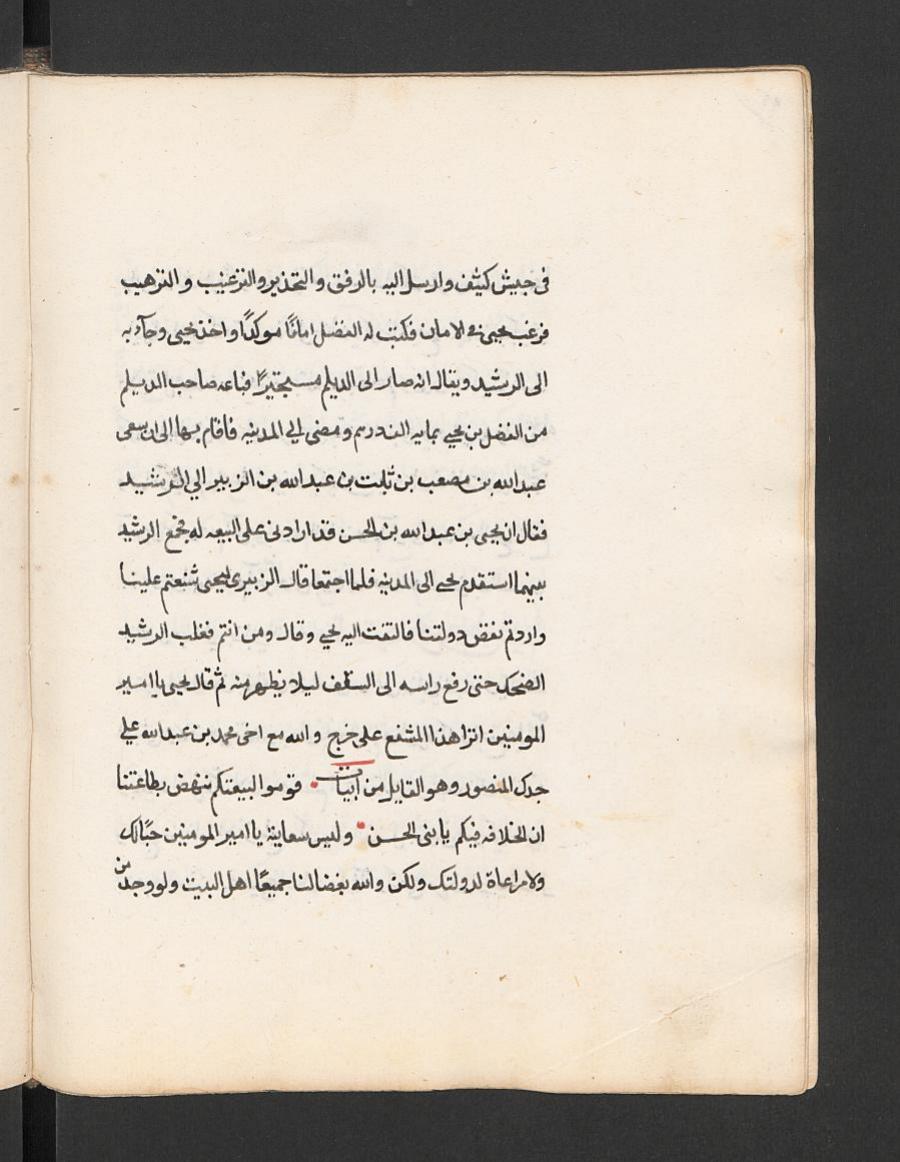 فى جيش كثيف وارسل اليه بالرفق والتحذير والترغيب والترهيب
فرغب يحيى فى الامان فكتب له الفضل امانًا موكدًا واخذ يحيى وجآء به
الى الرشيد ويقال انه صار الى الديلم مستجيرًا فباعه صاحب الديلم
من الفضل بن يحيى بمايه الف درهم ومضى الى المدينه فاقام بها الى ان سعى
عبد الله بن مصعب بن ثابت بن عبد الله بن الزبير الي الرشيد
فقال ان يحيى بن عبد الله بن الحسن قد ارادنى على البيعه له فجمع الرشيد
بينهما استقدم يحيى الى المدينه فلما اجتمعا قال الزبيرى ليحيى شنعتم علينا
واردتم نقض دولتنا فالتفت اليه يحيى وقال ومن انتم فغلب الرشيد
الضحك حتى رفع راسه الى السقف ليلا يظهر منه ثم قال يحيى يا امير
المومنين اترا هذا المشنع على خرج والله مع اخى محمد بن عبد الله علي
جدك المنصور وهو القايل من ابيات قوموا لبيعتكم ننهض بطاعتنا
ان الخلافه فيكم يا بنى الحسن وليس سعاية يا امير المومنين حبًا لك
ولا مراعاة لدولتك ولكن والله بغضا لنا جميعًا اهل البيت ولو وجد من